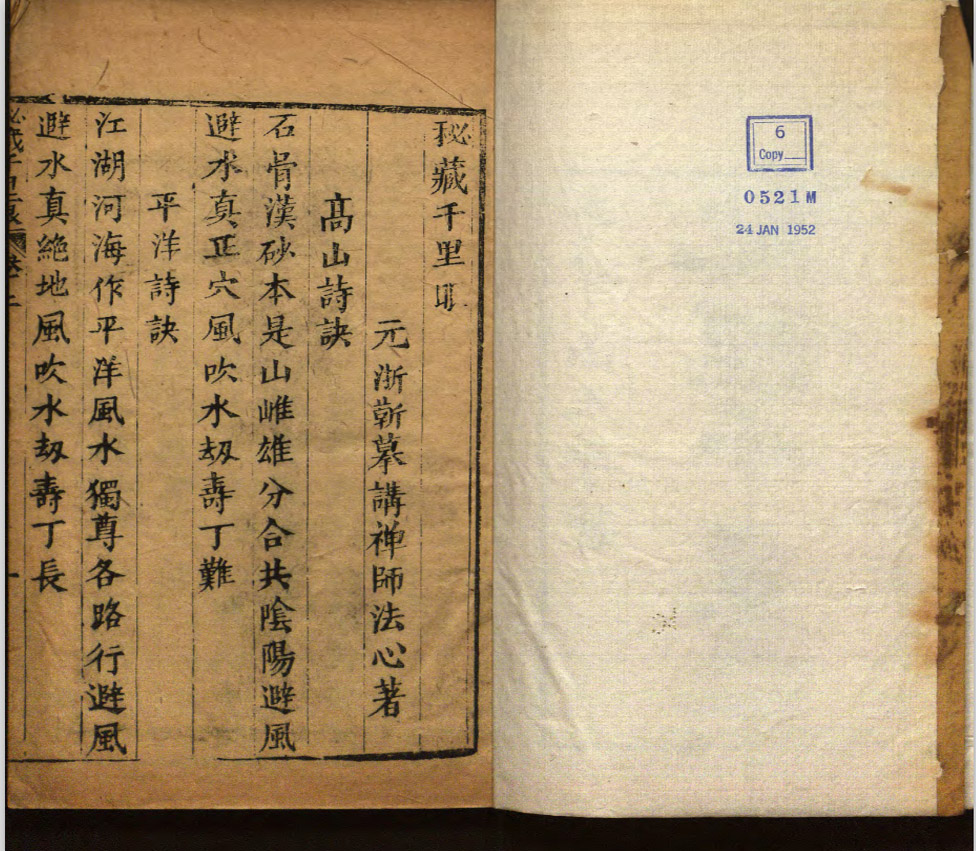 秘藏千里
元 浙靳墓講禅師法心著
髙山詩訣
石骨漢砂本是山雌雄分合共陰陽避風
避水真正穴風吹水刼壽丁難
平洋詩訣
江湖河海作平洋風水獨尊各路行避風
避水真絶地風吹水刼壽丁長
一
6
Copy
0521M
24 JAN 1952